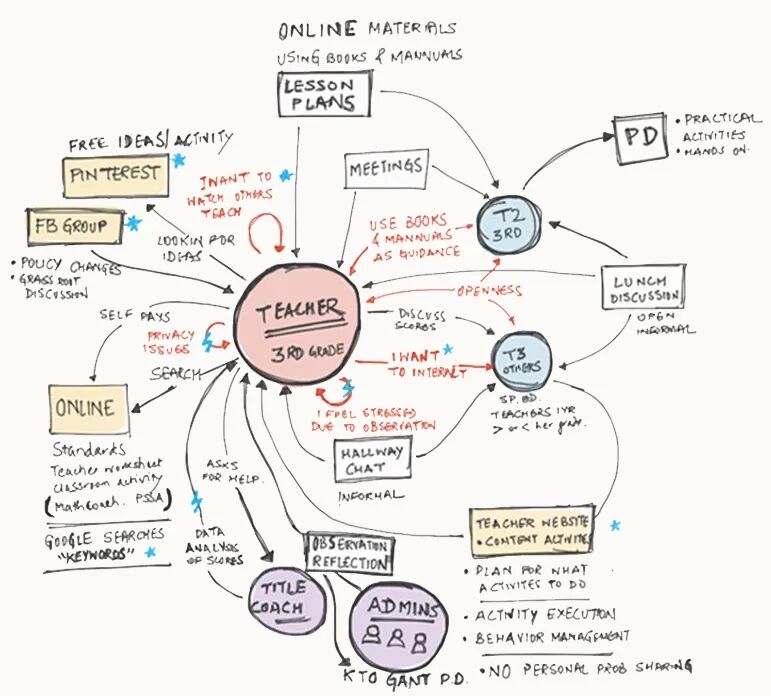 ONLINE MATERIALS
USING BOOKS & MANNUALS
LESSON
PLANS
FREE IDEAS/ACTIVITY
PINTEREST
I WANT TO
WATCH OTHERS
TEACH
MEETINGS
PD
• PRACTICAL
ACTIVITIES
• HANDS ON
FB GROUP
• POLICY CHANGES
• GRASS ROOT
DISCUSSION
LOOKIN FOR
IDEAS
USE BOOKS
& MANNUALS
AS GUIDANCE
T2
3RD
OPENNESS
LUNCH
DISCUSSION
OPEN
INFORMAL
SELF PAYS
PRIVACY
ISSUES
TEACHER
3RD GRADE
DISCUSS
SCORES
I WANT
TO INTERACT
T3
OTHERS
SP. ED.
TEACHERS 1YR
> or < her grade.
SEARCH
ONLINE
Standards
Teacher worksheet
classroom activity
(Mathcoach. PSSA)
GOOGLE SEARCHES
"KEYWORDS"
I FEEL STRESSED
DUE TO OBSERVATION
HALLWAY
CHAT
INFORMAL
ASKS
FOR HELP.
DATA
ANALYSIS
OF SCORES
OBSERVATION
REFLECTION
TITLE
COACH
ADMINS
K TO GANT P.D.
TEACHER WEBSITE
• CONTENT ACTIVITES
• PLAN FOR WHAT
ACTIVITES TO DO
• ACTIVITY EXECUTION
• BEHAVIOR MANAGEMENT
• NO PERSONAL PROB SHARING